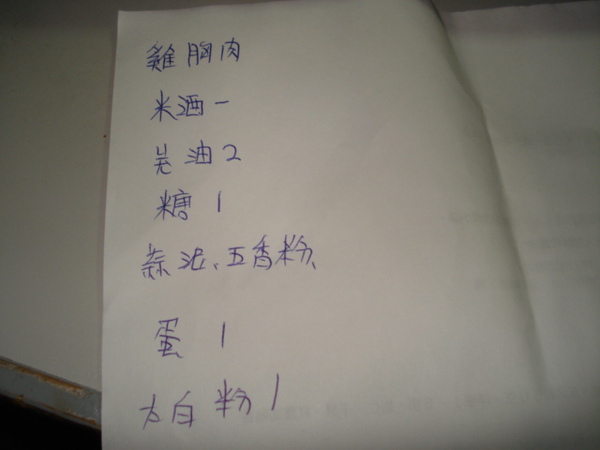 雞胸肉
米酒一
油2
糖1
蒜泥、五香粉、
蛋1
太白粉1